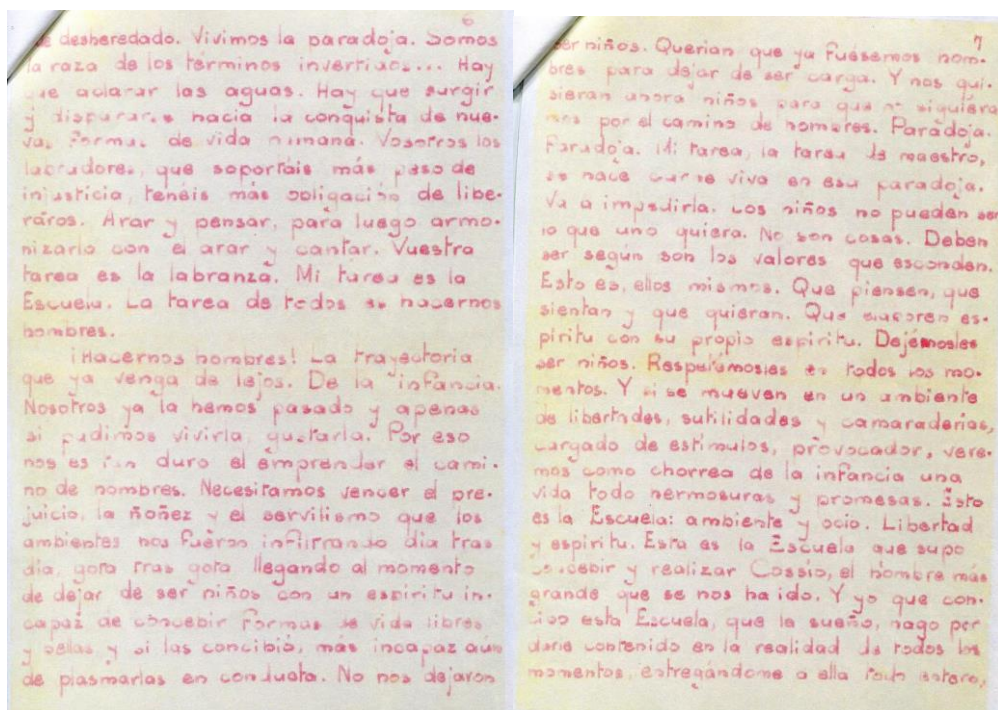 6
de desheredado. Vivimos la paradoja. Somos
la raza de los términos invertidos... Hay
que aclarar las aguas. Hay que surgir
y dispararse hacia la conquista de nue-
vas formas de vida humana. Vosotros los
labradores, que soportáis más peso de
injusticia, tenéis más obligación de libe-
raros. Arar y pensar, para luego armo-
nizarlo con el arar y cantar. Vuestra
tarea es la labranza. Mi tarea es la
Escuela. La tarea de todos es hacernos
hombres.
¡Hacernos hombres! La trayectoria
que ya venga de lejos. De la infancia.
Nosotros ya la hemos pasado y apenas
si pudimos vivirla, gustarla. Por eso
nos es tan duro el emprender el cami-
no de hombres. Necesitamos vencer el pre-
juicio, la ñoñez y el servilismo que los
ambientes nos fueron infiltrando día tras
día, gota tras gota llegando al momento
de dejar de ser niños con un espíritu in-
capaz de concebir formas de vida libres
y bellas y si las concibió, más incapaz aún
de plasmarlas en conducta. No nos dejaron
7
ser niños. Querian que ya fuésemos hom-
bres para dejar de ser carga. Y nos qui-
sieran ahora niños para que no siguiéra
mos por el camino de hombres. Paradoja.
Paradoja. Mi tarea, la tarea de maestro,
se hace carne viva en esa paradoja.
Va a impedirla. Los niños no pueden ser
lo que uno quiera. No son cosas. Deben
ser según son los valores que esconden.
Esto es, ellos mismos. Que piensen, que
sientan y que quieran. Que elaboren es-
píritu con su propio espíritu. Dejémosles
ser niños. Respetémosles en todos los mo-
mentos. Y si se mueven en un ambiente
de libertades, sutilidades y camaraderías,
cargado de estímulos, provocador, vere-
mos como chorrea de la infancia una
vida todo hermosuras y promesas. Esto
es la Escuela: ambiente y ocio. Libertad
y espíritu. Esta es la Escuela que supo
concebir y realizar Cossío, el hombre más
grande que se nos ha ido. Y yo que con-
cibo esta Escuela, que la sueño, hago por
darle contenido en la realidad de todos los
momentos, entregándome a ella todo entero,